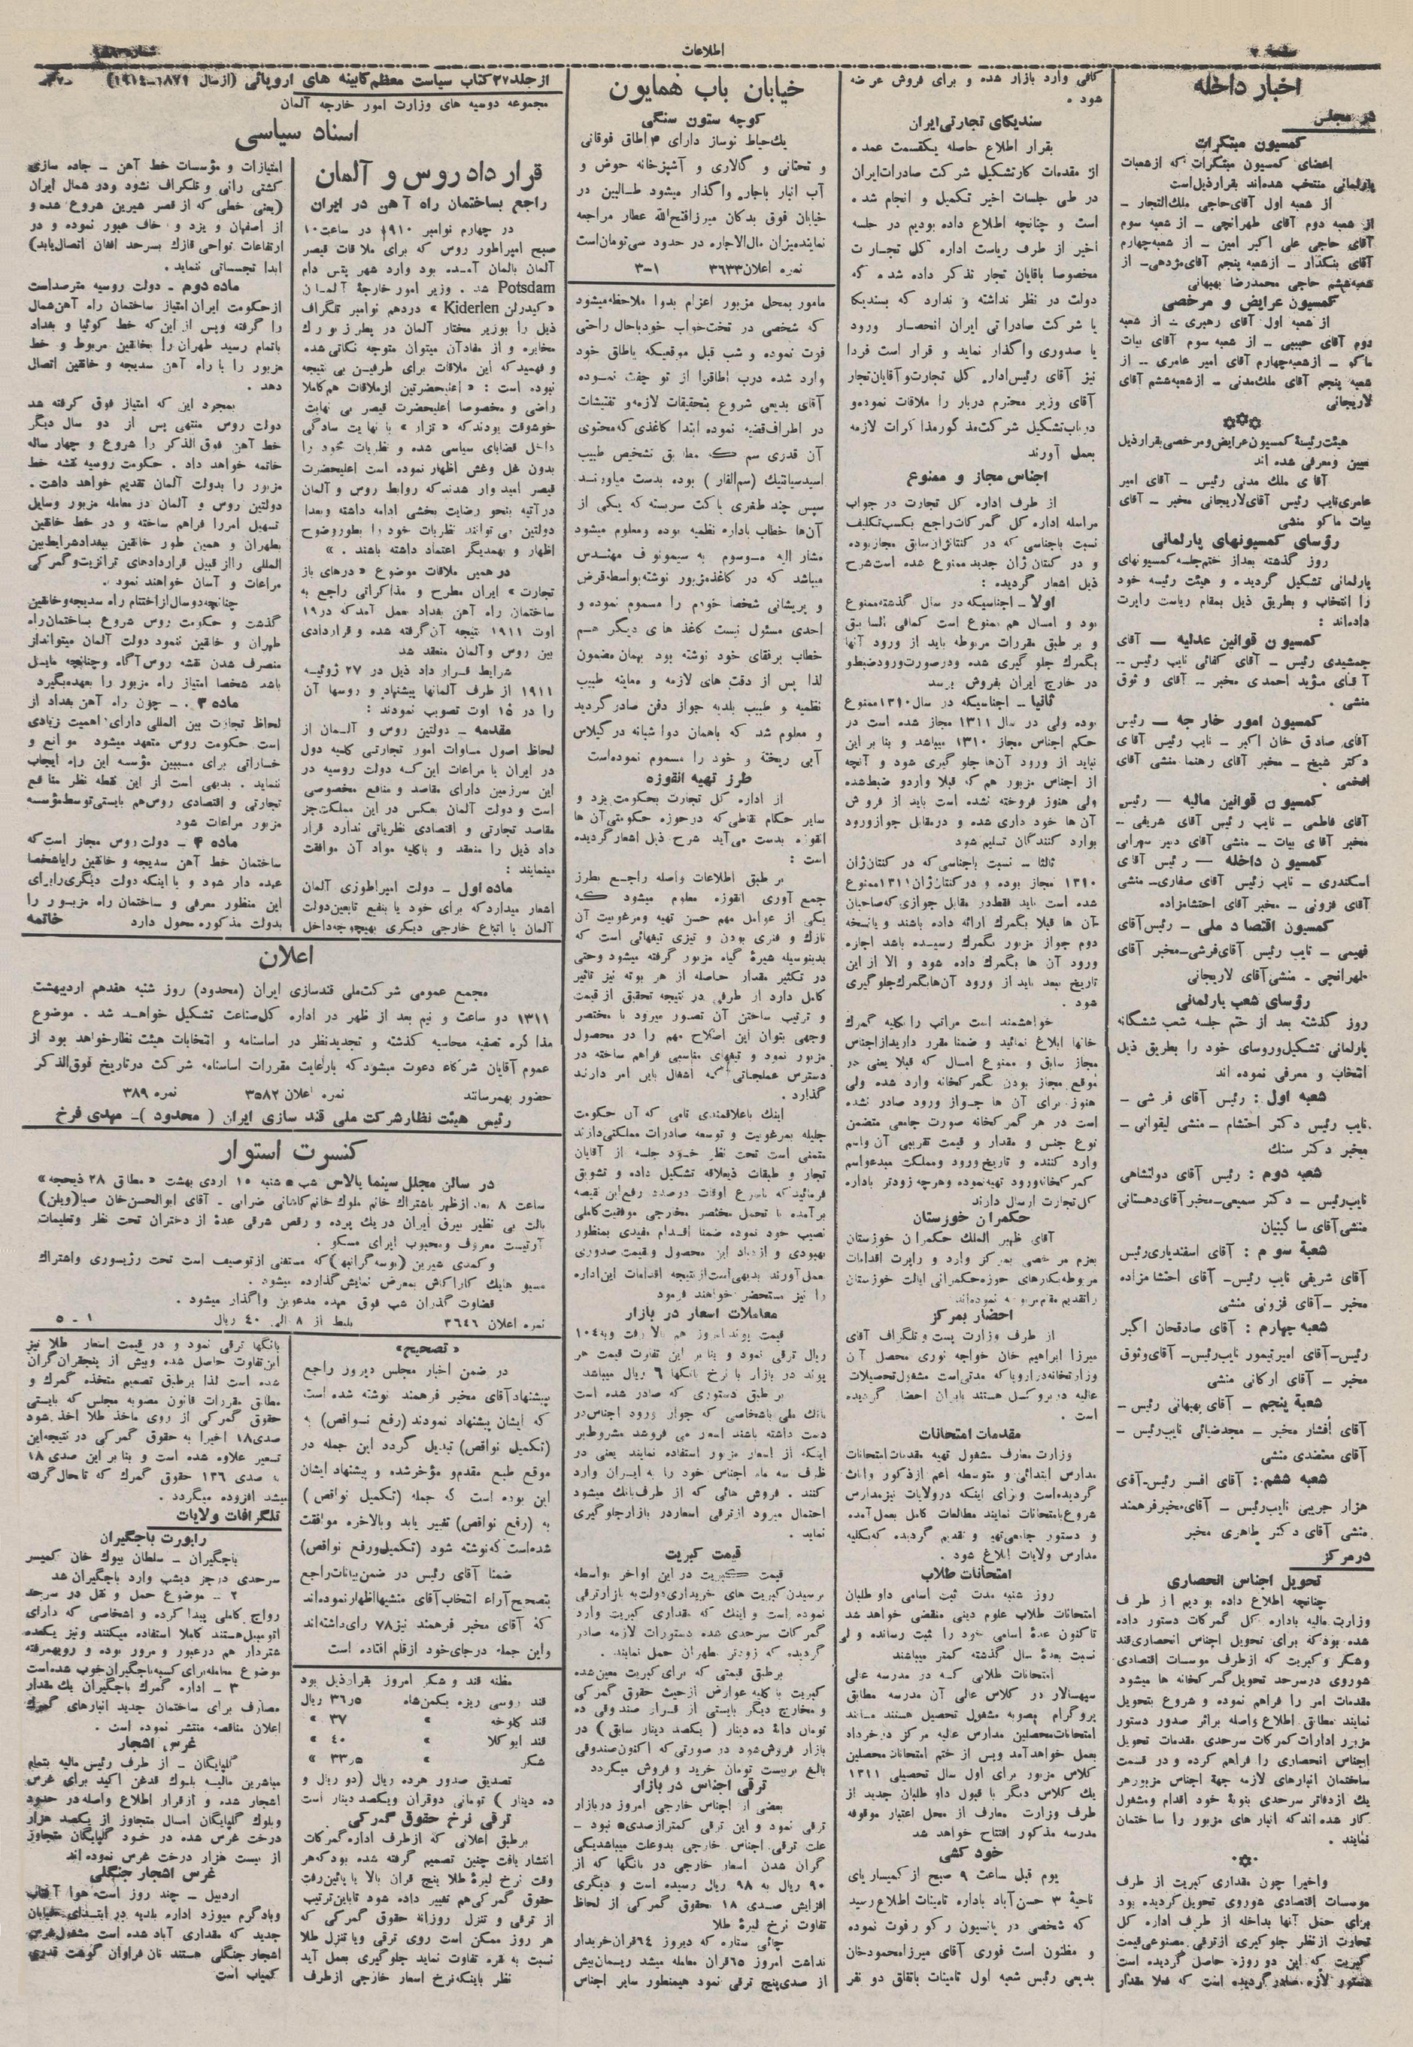 اطلاعات
اخبار داخله
در مجلس
کمسیون مبتکرات
اعضای کمسیون مبتکرات که ازشعبات
پارلمانی منتخب شده‌اند بقرارذیل‌است
از شعبه اول آقای‌حاجی ملك‌التجار ــ
از شعبه دوم آقای طهرانچی ــ ازشعبه سوم
آقای حاجی علی اکبر امین ــ ازشعبه‌چهارم
آقای بنکدار ــ ازشعبه پنجم آقای‌مژدهی ــ از
شعبه‌ششم حاجی محمدرضا بهبهانی
کمسیون عرایض و مرخصی
از شعبه اول آقای رهبری ــ از شعبه
دوم آقای حبیبی ــ از شعبه سوم آقای بیات
ماکو ــ ازشعبه‌چهارم آقای امیر عامری ــ از
شعبه پنجم آقای ملك‌مدنی ــ ازشعبه‌ششم آقای
لاریجانی
هیئت‌رئیسهٔ کمسیون‌عرایض‌ومرخصی‌بقرارذیل
تعیین ومعرفی شده اند
آقای ملك مدنی رئیس ــ آقای امیر
عامری‌نایب رئیس آقای‌لاریجانی مخبر ــ آقای
بیات ماکو منشی
رؤسای کمسیونهای پارلمانی
روز گذشته بعداز ختم‌جلسه کمسیونهای
پارلمانی تشکیل گردیده و هیئت رئیسه خود
را انتخاب و بطریق ذیل بمقام ریاست راپرت
داده‌اند :
کمسیون قوانین عدلیه ــ آقای
جمشیدی رئیس ــ آقای کفائی نایب رئیس ــ
آقای مؤید احمدی مخبر ــ آقای وثوق
منشی .
کمسیون امور خارجه ــ رئیس
آقای صادق خان اکبر ــ نایب رئیس آقای
دکتر شیخ ــ مخبر آقای رهنما منشی آقای
افخمی .
کمسیون قوانین مالیه ــ رئیس
آقای فاطمی ــ نایب رئیس آقای شریفی ــ
مخبر آقای بیات ــ منشی آقای دبیر سهرابی
کمسیون داخله ــ رئیس آقای
اسکندری ــ نایب رئیس آقای صفاری ــ منشی
آقای فزونی ــ مخبر آقای احتشامزاده
کمسیون اقتصاد ملی ــ رئیس‌آقای
فهیمی ــ نایب رئیس آقای‌قرشی‌ــمخبر آقای
طهرانچی ــ منشی‌آقای لاریجانی
رؤسای شعب پارلمانی
روز گذشته بعد از ختم جلسه شعب ششگانه
پارلمانی تشکیل‌وروسای خود را بطریق ذیل
انتخاب و معرفی نموده اند
شعبه اول : رئیس آقای قرشی ــ
نایب رئیس دکتر احتشام ــ منشی لیقوانی ــ
مخبر دکتر سنك
شعبه دوم : رئیس آقای دولتشاهی
نایب‌رئیس ــ دکتر سمیعی‌ــمخبر آقای‌دهستانی
منشی‌آقای ساکنیان
شعبهٔ سوم : آقای اسفندیاری‌رئیس
آقای شریفی نایب رئیس‌ــ آقای احتشامزاده
مخبر ــ آقای فزونی منشی
شعبه چهارم : آقای صادقخان اکبر
رئیس‌ــآقای امیرتیمور نایب‌رئیس‌ــ آقای‌وثوق
مخبر ــ آقای ارکانی منشی
شعبهٔ پنجم ــ آقای بهبهانی رئیس ــ
آقای افشار مخبر ــ مجدضیائی نایب‌رئیس ــ
آقای معتضدی منشی
شعبه ششم: آقای افسر رئیس‌ــ‌آقای
هزار جریبی نایب‌رئیس ــ آقای‌مخبرفرهمند
منشی آقای دکتر طاهری مخبر
درمرکز
تحویل اجناس انحصاری
چنانچه اطلاع داده بودیم از طرف
وزارت مالیه باداره کل گمرکات دستور داده
شده بودکه برای تحویل اجناس انحصاری‌قند
وشکر و کبریت که ازطرف موسسات اقتصادی
شوروی درسرحد تحویل‌گمرکخانه ها میشود
مقدمات امر را فراهم نموده و شروع بتحویل
نمایند مطابق اطلاع واصله براثر صدور دستور
مزبور ادارات‌گمرکات سرحدی مقدمات تحویل
اجناس انحصاری را فراهم کرده و در قسمت
ساختمان انبارهای لازمه جهة اجناس مزبورهر
یك ازدفاتر سرحدی بنوبهٔ خود اقدام ومشغول
کار شده‌اندکه انبار های مزبور را ساختمان
نمایند .
واخیرا چون مقداری کبریت از طرف
موسسات اقتصادی شوروی تحویل‌گردیده بود
برای حمل آنها بداخله از طرف اداره کل
تجارت ازنظر جلوگیری ازترقی مصنوعی‌قیمت
کبریت که این دو روزه حاصل گردیده است
دستور لازم صادرگردیده است که فعلا مقدار
کافی وارد بازار شده و برای فروش عرضه
شود .
سندیکای تجارتی ایران
بقرار اطلاع حاصله یکقسمت عمده
از مقدمات کارتشکیل شرکت صادرات‌ایران
در طی جلسات اخیر تکمیل و انجام شده
است و چنانچه اطلاع داده بودیم در جلسه
اخیر از طرف ریاست اداره کل تجارت
مخصوصا باقایان تجار تذکر داده شده که
دولت در نظر نداشته و ندارد که بسندیکا
یا شرکت صادراتی ایران انحصار ورود
یا صدوری واگذار نماید و قرار است فردا
نیز آقای رئیس‌اداره کل تجارت‌وآقایان‌تجار
آقای وزیر محترم دربار را ملاقات نموده‌و
درباب‌تشکیل شرکت‌مذ کورمذاکرات لازمه
بعمل آورند
اجناس مجاز و ممنوع
از طرف اداره کل تجارت در جواب
مراسله اداره کل گمرکات‌راجع بکسب‌تکلیف
نسبت باجناسی که در کنتانژان‌سابق مجازبوده
و در کنتان ژان جدید ممنوع شده است‌شرح
ذیل اشعار گردیده :
اولا ــ اجناسیکه در سال گذشته‌ممنوع
بود و امسال هم ممنوع است کمافی السابق
و بر طبق مقررات مربوطه باید از ورود آنها
بگمرك جلو گیری شده ودرصورت‌ورودضبط‌و
در خارج ایران بفروش برسد
ثانیا ــ اجناسیکه در سال۱۳۱۰ممنوع
بوده ولی در سال ۱۳۱۱ مجاز شده است در
حکم اجناس مجاز ۱۳۱۰ میباشد و بنا بر این
نباید از ورود آن‌ها جلو گیری شود و آنچه
از اجناس مزبور هم که قبلا واردو ضبط‌شده
ولی هنوز فروخته نشده است باید از فروش
آن ها خود داری شده و درمقابل جوازورود
بوارد کنندگان تسلیم شود
ثالثا ــ نسبت باجناسی که در کنتان‌ژان
۱۳۱۰ مجاز بوده و درکنتان‌ژان ۱۳۱۱ممنوع
شده است باید فقط‌در مقابل جوازی‌که‌صاحبان
آن ها قبلا بگمرك ارائه داده باشند و یانسخه
دوم جواز مزبور بگمرك رسیده باشد اجازه
ورود آن ها بگمرك داده شود و الا از این
تاریخ ببعد باید از ورود آن‌هابگمرك‌جلوگیری
شود .
خواهشمند است مراتب را بکلیه گمرك
خانها ابلاغ نمائید و ضمنا مقرر داریدازاجناس
مجاز سابق و ممنوع امسال که قبلا یعنی در
موقع مجاز بودن بگمرکخانه وارد شده ولی
هنوز برای آن ها جواز ورود صادر نشده
است در هر گمرکخانه صورت جامعی متضمن
نوع جنس و مقدار و قیمت تقریبی آن واسم
وارد کننده و تاریخ ورود ومملکت مبدء‌واسم
گمرکخانه‌ورود تهیه نموده وهرچه زودتر باداره
کل‌تجارت ارسال دارند
حکمران خوزستان
آقای ظهیر الملك حکمران خوزستان
بعزم مرخصی بمرکز وارد و راپرت اقدامات
مربوطه بکارهای حوزه‌حکمرانی ایالت خوزستان
راتقدیم مقام‌مربوطه نموده‌اند
احضار بمرکز
از طرف وزارت پست و تلگراف آقای
میرزا ابراهیم خان خواجه نوری محصل آن
وزارتخانه‌دراروپاکه مدتی‌است مشغول‌تحصیلات
عالیه در بروکسل هستند بایران احضار گردیده
است .
مقدمات امتحانات
وزارت معارف مشغول تهیه مقدمات‌امتحانات
مدارس ابتدائی و متوسطه اعم ازذکور واناث
گردیده‌است وبرای اینکه درولایات نیزمدارس
شروع‌بامتحانات نمایند مطالعات کامل بعمل‌آمده
و دستور جامعی‌تهیه و تقدیم گردیده که‌بکلیه
مدارس ولایات ابلاغ شود .
امتحانات طلاب
روز شنبه مدت ثبت اسامی داو طلبان
امتحانات طلاب علوم دینی منقضی خواهد شد
تاکنون عدهٔ اسامی خود را ثبت رسانده و لی
نسبت بعدهٔ سال گذشته کمتر میباشند
امتحانات طلابی که در مدرسه عالی
سپهسالار در کلاس عالی آن مدرسه مطابق
پروگرام مصوبه مشغول تحصیل هستند مانند
امتحانات‌محصلین مدارس عالیه مرکز درخرداد
بعمل خواهدآمد وپس از ختم امتحانات محصلین
کلاس مزبور برای اول سال تحصیلی ۱۳۱۱
یك کلاس دیگر با قبول داو طلبان جدید از
طرف وزارت معارف از محل اعتبار موقوفه
مدرسه مذکور افتتاح خواهد شد
خودکشی
یوم قبل ساعت ۹ صبح از کمیسار یای
ناحیهٔ ۳ حسن‌آباد باداره تامینات اطلاع رسید
که شخصی در پانسیون رکو رفوت نموده
و مظنون است فوری آقای میرزامحمودخان
بدیعی رئیس شعبه اول تامینات باتفاق دو نفر
خیابان باب همایون
کوچه ستون سنگی
یك‌حیاط نوساز دارای ۴ اطاق فوقانی
و تحتانی و گالاری و آشپزخانه حوض و
آب انبار باجاره واگذار میشود طالبین در
خیابان فوق بدکان میرزافتح‌الله عطار مراجعه
نمایندمیزان مال‌الاجاره در حدود سی‌تومان‌است
نمره اعلان ۳۶۳۳ ۱ــ۳
مامور بمحل مزبور اعزام بدوا ملاحظه‌میشود
که شخصی در تخت‌خواب خودباحال راحتی
فوت نموده و شب قبل موقعیکه باطاق خود
وارد شده درب اطاقرا از تو چفت نموده
آقای بدیعی شروع بتحقیقات لازمه‌و تفتیشات
در اطراف‌قضیه نموده ابتدا کاغذی‌که‌محتوی
آن قدری سم که مطابق تشخیص طبیب
اسیدسیانتیك (سم‌الفار) بوده بدست میاورند
سپس چند طغری پاکت سربسته که یکی از
آن‌ها خطاب باداره نظمیه بوده ومعلوم میشود
مشارالیه موسوم به سیمونوف مهندس
میباشد که در کاغذمزبور نوشته بواسطه‌قرض
و پریشانی شخصا خودم را مسموم نموده و
احدی مسئول نیست کاغذ های دیگر هم
خطاب برفقای خود نوشته بود بهمان مضمون
لذا پس از دقت های لازمه و معاینه طبیب
نظمیه و طبیب بلدیه جواز دفن صادرگردید
و معلوم شد که باهمان دوا شبانه در گیلاس
آبی ریخته و خود را مسموم نموده‌است
طرز تهیه انقوزه
از اداره کل تجارت بحکومت یزد و
سایر حکام نقاطی که درحوزه حکومتی‌آن ها
انقوزه بدست می‌آید شرح ذیل اشعارگردیده
است :
بر طبق اطلاعات واصله راجع بطرز
جمع آوری انقوزه معلوم میشود که
یکی از عوامل مهم حسن تهیه ومرغوبیت آن
نازك و فنری بودن و تیزی تیغهائی است که
بدینوسیله شیرهٔ گیاه مزبور گرفته میشود وحتی
در تکثیر مقدار حاصله از هر بوته نیز تاثیر
کامل دارد از طرفی در نتیجه تحقیق از قیمت
و ترتیب ساختن آن تصور میرود با مختصر
وجهی بتوان این اصلاح مهم را در محصول
مزبور نمود و تیغهای مناسبی فراهم ساخته در
دسترس عملجاتی که اشغال باین امر دارند
گذارد .
اینك باعلاقمندی تامی که آن حکومت
جلیله بمرغوبیت و توسعه صادرات مملکتی‌دارند
متمنی است تحت نظر خود جلسه از آقایان
تجار و طبقات ذیعلاقه تشکیل داده و تشویق
فرمائیدکه باسرع اوقات درصدد رفع‌این نقیصه
برآمده با تحمل مختصر مخارجی موفقیت‌کاملی
نصیب خود نموده ضمنا اقدام مفیدی بمنظور
بهبودی و ازدیاد این محصول وقیمت صدوری
بعمل‌آورند بدیهی‌است‌ازنتیجه اقدامات این‌اداره
را نیز مستحضر خواهند فرمود
معاملات اسعار در بازار
قیمت پوند امروز هم بالا رفت وبه۱۰۴
ریال ترقی نمود و بنا بر این تفاوت قیمت هر
پوند در بازار با نرخ بانکها ۶ ریال میباشد
بر طبق دستوری که صادر شده است
بانك ملی باشخاصی که جواز ورود اجناس‌در
دست داشته باشند اسعار می فروشد مشروط‌بر
اینکه از اسعار مزبور استفاده نمایند یعنی در
ظرف سه ماه اجناس خود را بایران وارد
کنند . فروش هائی که از طرف‌بانك میشود
احتمال میرود ازترقی اسعاردر بازارجلوگیری
نماید .
قیمت کبریت
قیمت کبریت در این اواخر بواسطه
نرسیدن کبریت های خریداری دولت به بازارترقی
نموده است و اینك که مقداری کبریت وارد
گمرکات سرحدی شده دستورات لازمه صادر
گردیده که زودتر بطهران حمل نمایند .
برطبق قیمتی که برای کبریت معین‌شده
کبریت با کلیه عوارض از‌حیث حقوق گمرکی
و مخارج دیگر بایستی از قرار صندوقی ده
تومان دانهٔ ده دینار ( یکصد دینار سابق ) در
بازار فروش‌شود در صورتی‌که اکنون‌صندوقی
بالغ بر بیست تومان خرید و فروش میگردد
ترقی اجناس در بازار
بعضی از اجناس خارجی امروز دربازار
ترقی نمود و این ترقی کمترازصدی۵ نبود ــ
علت ترقی اجناس خارجی بدوعلت میباشدیکی
گران شدن اسعار خارجی در بانگها که از
۹۰ ریال به ۹۸ ریال رسیده است و دیگری
افزایش صدی ۱۸ حقوق گمرکی از لحاظ
تفاوت نرخ لیرهٔ طلا
چائی ستاره که دیروز ۶۴قران‌خریدار
نداشت امروز ۶۵قران معامله میشد ریسمان‌بیش
از صدی‌پنج ترقی نمود همینطور سایر اجناس
از جلد ۲۷ کتاب سیاست معظم کابینه های اروپائی (از سال ۱۸۷۱ــ۱۹۱۴)
مجموعه دوسیه های وزارت امور خارجه آلمان
اسناد سیاسی
قرارداد روس و آلمان
راجع بساختمان راه آهن در ایران
در چهارم نوامبر ۱۹۱۰ در ساعت۱۰
صبح امپراطور روس که برای ملاقات قیصر
آلمان بالمان آمده بود وارد شهر پتس دام
Potsdam شد . وزیر امور خارجهٔ آلمان
«کیدرلن Kiderlen » دردهم نوامبر تلگراف
ذیل را بوزیر مختار آلمان در پطرزبورك
مخابره و از مفادآن میتوان متوجه نکاتی‌شده
و فهمیدکه این ملاقات برای طرفین بی نتیجه
نبوده است : « اعلیحضرتین ازملاقات هم‌کاملا
راضی و مخصوصا اعلیحضرت قیصر بی نهایت
خوشوقت بودندکه « تزار » با نهایت سادگی
داخل قضایای سیاسی شده و نظریات خود را
بدون غل وغش اظهار نموده است اعلیحضرت
قیصر امیدوار شدندکه روابط روس و آلمان
درآتیه بنحو رضایت بخشی ادامه داشته وبعدا
دولتین می‌توانند نظریات خود را بطوروضوح
اظهار و بهمدیگر اعتماد داشته باشند . »
در همین ملاقات موضوع « درهای باز
تجارت » ایران مطرح و مذاکراتی راجع به
ساختمان راه آهن بغداد بعمل آمدکه در۱۹
اوت ۱۹۱۱ نتیجه آن‌گرفته شده و قراردادی
بین روس وآلمان منعقد شد
شرایط قرار داد ذیل در ۲۷ ژوئیه
۱۹۱۱ از طرف آلمانها پیشنهاد و روسها آن
را در ۱۵ اوت تصویب نمودند :
مقدمه ــ دولتین روس و آلمان از
لحاظ اصول مساوات امور تجارتی کلیه دول
در ایران با مراعات این‌که دولت روسیه در
این سرزمین دارای مقاصد و منافع مخصوصی
است و دولت آلمان بعکس در این مملکت‌جز
مقاصد تجارتی و اقتصادی نظریاتی ندارد قرار
داد ذیل را منعقد و باکلیه مواد آن موافقت
مینمایند :
ماده اول ــ دولت امپراطوری آلمان
اشعار میداردکه برای خود یا بنفع تابعین‌دولت
آلمان یا اتباع خارجی دیگری بهیچوجه‌داخل
امتیازات و مؤسسات خط آهن ــ جاده سازی
کشتی رانی و تلگراف نشود ودر شمال ایران
(یعنی خطی که از قصر شیرین شروع شده و
از اصفهان و یزد و خاف عبور نموده و در
ارتفاعات نواحی قازك بسرحد افغان اتصال‌یابد)
ابدا تجسساتی ننماید .
ماده دوم ــ دولت روسیه مترصداست
ازحکومت ایران امتیاز ساختمان راه آهن‌شمال
را گرفته وپس از این‌که خط کونیا و بغداد
باتمام رسید طهران‌را بخانقین مربوط و خط
مزبور را با راه آهن سدیجه و خانقین اتصال
دهد .
بمجرد این که امتیاز فوق گرفته شد
دولت روس منتهی پس از دو سال دیگر
خط آهن فوق‌الذکر را شروع و چهار ساله
خاتمه خواهد داد . حکومت روسیه نقشه خط
مزبور را بدولت آلمان تقدیم خواهد داشت .
دولتین روس و آلمان در معامله مزبور وسایل
تسهیل امررا فراهم ساخته و در خط خانقین
بطهران و همین طور خانقین ببغدادشرایط‌بین
المللی راازقبیل قراردادهای ترانزیت‌وگمرکی
مراعات و آسان خواهند نمود .
چنانچه‌دوسال‌ازاختتام راه سدیجه‌وخانقین
گذشت و حکومت روس شروع بساختمان‌راه
طهران و خانقین ننمود دولت آلمان میتوانداز
منصرف شدن نقشه روس‌آگاه وچنانچه مایل
باشد شخصا امتیاز راه مزبور را بعهده‌بگیرد
ماده ۳ . ــ چون راه آهن بغداد از
لحاظ تجارت بین المللی دارای اهمیت زیادی
است حکومت روس متعهد میشود موانع و
خساراتی برای مسببین مؤسسه این راه ایجاب
ننماید . بدیهی است از این نقطه نظر منافع
تجارتی و اقتصادی روس‌هم بایستی‌توسط‌مؤسسه
مزبور مراعات شود
ماده ۴ ــ دولت روس مجاز است‌که
ساختمان خط آهن سدیجه و خانقین راباشخاصا
عهده دار شود و با اینکه دیگری‌رابرای
این منظور معرفی و ساختمان راه مزبور را
بدولت مذکوره محول دارد خاتمه
اعلان
مجمع عمومی شرکت‌ملی قندسازی ایران (محدود) روز شنبه هفدهم اردیبهشت
۱۳۱۱ دو ساعت و نیم بعد از ظهر در اداره کل‌صناعت تشکیل خواهد شد . موضوع
مذاکره تصفیه محاسبه گذشته و تجدیدنظر در اساسنامه و انتخابات هیئت نظارخواهد بود از
عموم آقایان شرکاء دعوت میشودکه بارعایت مقررات اساسنامه شرکت درتاریخ فوق‌الذکر
حضور بهمرسانند نمره اعلان ۳۵۸۲ نمره ۳۸۹
رئیس هیئت نظارشرکت ملی قند سازی ایران ( محدود )ــ مهدی فرخ
کنسرت استوار
در سالن مجلل سینما پالاس شب ۵ شنبه ۱۵ اردی بهشت « مطابق ۲۸ ذیحجه »
ساعت ۸ بعدازظهر باشتراك خانم ملوك خانم‌کاشانی ضرابی ــ آقای ابوالحسن‌خان صبا(ویلن)
بالت بی نظیر بیرق ایران دریك پرده و رقص شرقی عدهٔ از دختران تحت نظر وتعلیمات
آرتیست معروف ومحبوب ایرای مسکو .
و کمدی شیرین (بوسه‌گرانبها)که مستغنی ازتوصیف است تحت رژیسوری واشتراك
مسیو هایك کاراکاش بمعرض نمایش‌گذارده میشود .
قضاوت گذران شب فوق بعهده مدعوین واگذار میشود .
نمره اعلان ۳۶۴۶ بلیط از ۸ الی ۴۰ ریال ۱ ــ ۵
« تصحیح»
در ضمن اخبار مجلس دیروز راجع
پیشنهادآقای مخبر فرهمند نوشته شده است
که ایشان پیشنهاد نمودند (رفع نواقص) به
(تکمیل نواقص) تبدیل گردد این جمله در
موقع طبع مقدم‌و مؤخرشده و پیشنهاد ایشان
این بوده است که جمله (تکمیل نواقص)
به (رفع نواقص) تغییر یابد وبالاخره موافقت
شده‌است‌که‌نوشته شود (تکمیل‌ورفع نواقص)
ضمنا آقای رئیس در ضمن‌بیانات‌راجع
بتصحیح‌آراء انتخاب‌آقای منشیهااظهارنموده‌اند
که آقای مخبر فرهمند نیز۷۸ رای‌داشته‌اند
واین جمله درجای‌خود ازقلم افتاده است
مظنه قند و شکر امروز بقرارذیل بود
قند روسی ریزه یکمن‌شاه ۳۶٫۵ ریال
قند کلوخه » ۳۷ »
قند ابوکلا » ۴۰ »
شکر » ۳۳٫۵ »
تصدیق صدور هرده ریال (دو ریال و
ده دینار ) تومانی دوقران ویکصد دینار است
ترقی نرخ حقوق گمرکی
برطبق اعلانی که ازطرف اداره‌گمرکات
انتشار یافت چنین تصمیم گرفته شده بودکه‌هر
وقت نرخ لیرهٔ طلا پنج قران بالا یا پائین‌رفت
حقوق گمرکی‌هم تغییر داده شود تاباین‌ترتیب
از ترقی و تنزل روزانه حقوق گمرکی که
هر روز ممکن است روی ترقی ویاتنزل طلا
نسبت به نقره تفاوت نماید جلوگیری بعمل آید
نظر باینکه‌نرخ اسعار خارجی ازطرف
بانگها ترقی نمود و در قیمت اسعار طلا نیز
این‌تفاوت حاصل شده وبیش از پنجقران‌گران
شده است لذا برطبق تصمیم متخذه گمرك و
مطابق مقررات قانون مصوبه مجلس که بایستی
حقوق گمرکی از روی ماخذ طلا اخذ شود
صدی۱۸ اخیرا به حقوق گمرکی در نتیجه‌این
تسعیر علاوه شده است و بنا بر این صدی ۱۸
به صدی ۱۳۶ حقوق گمرك که تاحال‌گرفته
میشد افزوده میگردد .
تلگرافات ولایات
راپورت باجگیران
باجگیران ــ سلطان بیوك خان کمیسر
سرحدی درجز دیشب وارد باجگیران شد
۲ ــ موضوع حمل و نقل در سرحد
رواج کاملی پیدا کرده و اشخاصی که دارای
اتومبیل‌هستند کاملا استفاده میکنند ونیز یکعده
شتردار هم درعبور و مرور بوده و رویهمرفته
موضوع معامله‌برای کسبه‌باجگیران خوب شده‌است
۳ ــ اداره گمرك باجگیران یك مقدار
مصارف برای ساختمان جدید انبارهای گمرك
اعلان مناقصه منتشر نموده است .
غرس اشجار
گلپایگان ــ از طرف رئیس مالیه بتمام
مباشرین مالیه بلوك قدغن اکید برای غرس
اشجار شده و ازقرار اطلاع واصله‌در حدود
وبلوك گلپایگان امسال متجاوز از یکصد هزار
درخت غرس شده در خود گلپایگان متجاوز
از بیست هزار درخت غرس نموده اند
غرس اشجار جنگلی
اردبیل ــ چند روز است هوا آفتاب
وبادگرم میوزد اداره بلدیه در ابتدای خیابان
جدید که مقداری آباد شده است مشغول‌غرس
اشجار جنگلی هستند نان فراوان گوشت قدری
کمیاب است